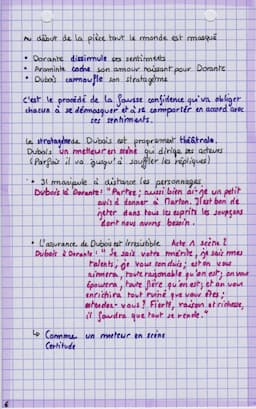 Au début de la pièce tout le monde est masqué
• Dorante dissimule ses sentiments
• Araminte cache son amour naissant pour Dorante
• Dubois camoufle son stratagème
C'est le procédé de la fausse confidence qui va obliger
chacun à se démasquer et à se comporter en accord avec
ses sentiments.
Le stratagème de Dubois est proprement théâtrale.
Dubois un metteur en scène qui dirige ses acteurs
(Parfois il va jusqu'à souffler les répliques)
• Il manipule à distance les personnages
Dubois à Dorante: "Partez; aussi bien ai-je un petit
avis à donner à Marton. Il est bon de
jeter dans tous les esprits les soupçons
dont nous avons besoin.
• L'assurance de Dubois est irrésistible Acte 1 scène 2
Dubois à Dorante: "Je sais votre mérite, je sais mes
talents, je vous conduis; et on vous
aimera, toute raisonable qu'on est; on vous
épousera, toute fière qu'on est; et on vous
enrichira tout ruiné que vous êtes;
entendez-vous? Fierté, raison et richesse,
il faudra que tout se rende."
↳ Comme un metteur en scène
Certitude